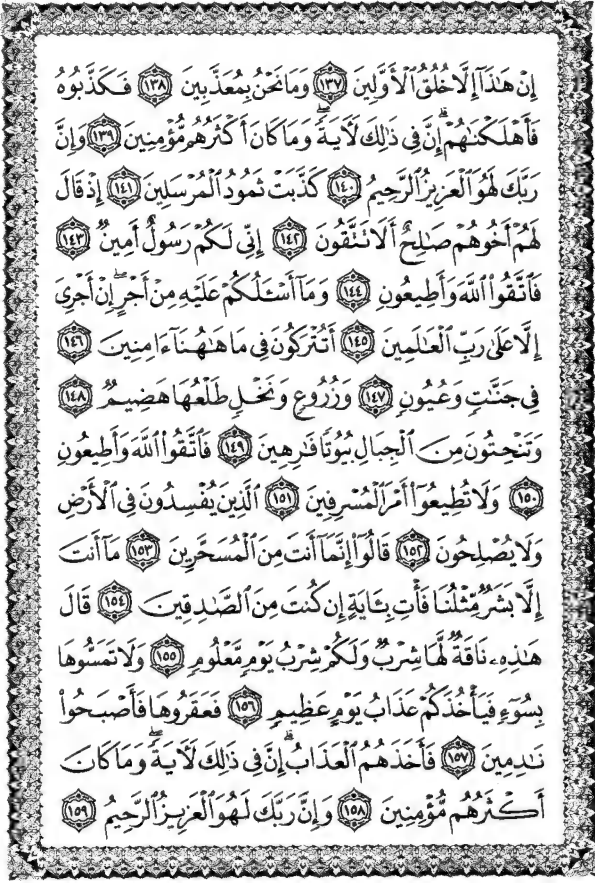 إِنْ هَٰذَآ إِلَّا خُلُقُ ٱلْأَوَّلِينَ ١٣٧ وَمَا نَحْنُ بِمُعَذَّبِينَ ١٣٨ فَكَذَّبُوهُ
فَأَهْلَكْنَٰهُمْ ۗ إِنَّ فِى ذَٰلِكَ لَآيَةً ۖ وَمَا كَانَ أَكْثَرُهُم مُّؤْمِنِينَ ١٣٩ وَإِنَّ
رَبَّكَ لَهُوَ ٱلْعَزِيزُ ٱلرَّحِيمُ ١٤٠ كَذَّبَتْ ثَمُودُ ٱلْمُرْسَلِينَ ١٤١ إِذْ قَالَ
لَهُمْ أَخُوهُمْ صَٰلِحٌ أَلَا تَتَّقُونَ ١٤٢ إِنِّى لَكُمْ رَسُولٌ أَمِينٌ ١٤٣
فَٱتَّقُوا۟ ٱللَّهَ وَأَطِيعُونِ ١٤٤ وَمَآ أَسْـَٔلُكُمْ عَلَيْهِ مِنْ أَجْرٍ ۖ إِنْ أَجْرِىَ
إِلَّا عَلَىٰ رَبِّ ٱلْعَٰلَمِينَ ١٤٥ أَتُتْرَكُونَ فِى مَا هَٰهُنَآ ءَامِنِينَ ١٤٦
فِى جَنَّٰتٍ وَعُيُونٍ ١٤٧ وَزُرُوعٍ وَنَخْلٍ طَلْعُهَا هَضِيمٌ ١٤٨
وَتَنْحِتُونَ مِنَ ٱلْجِبَالِ بُيُوتًا فَٰرِهِينَ ١٤٩ فَٱتَّقُوا۟ ٱللَّهَ وَأَطِيعُونِ
١٥٠ وَلَا تُطِيعُوٓا۟ أَمْرَ ٱلْمُسْرِفِينَ ١٥١ ٱلَّذِينَ يُفْسِدُونَ فِى ٱلْأَرْضِ
وَلَا يُصْلِحُونَ ١٥٢ قَالُوٓا۟ إِنَّمَآ أَنتَ مِنَ ٱلْمُسَحَّرِينَ ١٥٣ مَآ أَنتَ
إِلَّا بَشَرٌ مِّثْلُنَا فَأْتِ بِـَٔايَةٍ إِن كُنتَ مِنَ ٱلصَّٰدِقِينَ ١٥٤ قَالَ
هَٰذِهِۦ نَاقَةٌ لَّهَا شِرْبٌ وَلَكُمْ شِرْبُ يَوْمٍ مَّعْلُومٍ ١٥٥ وَلَا تَمَسُّوهَا
بِسُوٓءٍ فَيَأْخُذَكُمْ عَذَابُ يَوْمٍ عَظِيمٍ ١٥٦ فَعَقَرُوهَا فَأَصْبَحُوا۟
نَٰدِمِينَ ١٥٧ فَأَخَذَهُمُ ٱلْعَذَابُ ۗ إِنَّ فِى ذَٰلِكَ لَآيَةً ۖ وَمَا كَانَ
أَكْثَرُهُم مُّؤْمِنِينَ ١٥٨ وَإِنَّ رَبَّكَ لَهُوَ ٱلْعَزِيزُ ٱلرَّحِيمُ ١٥٩